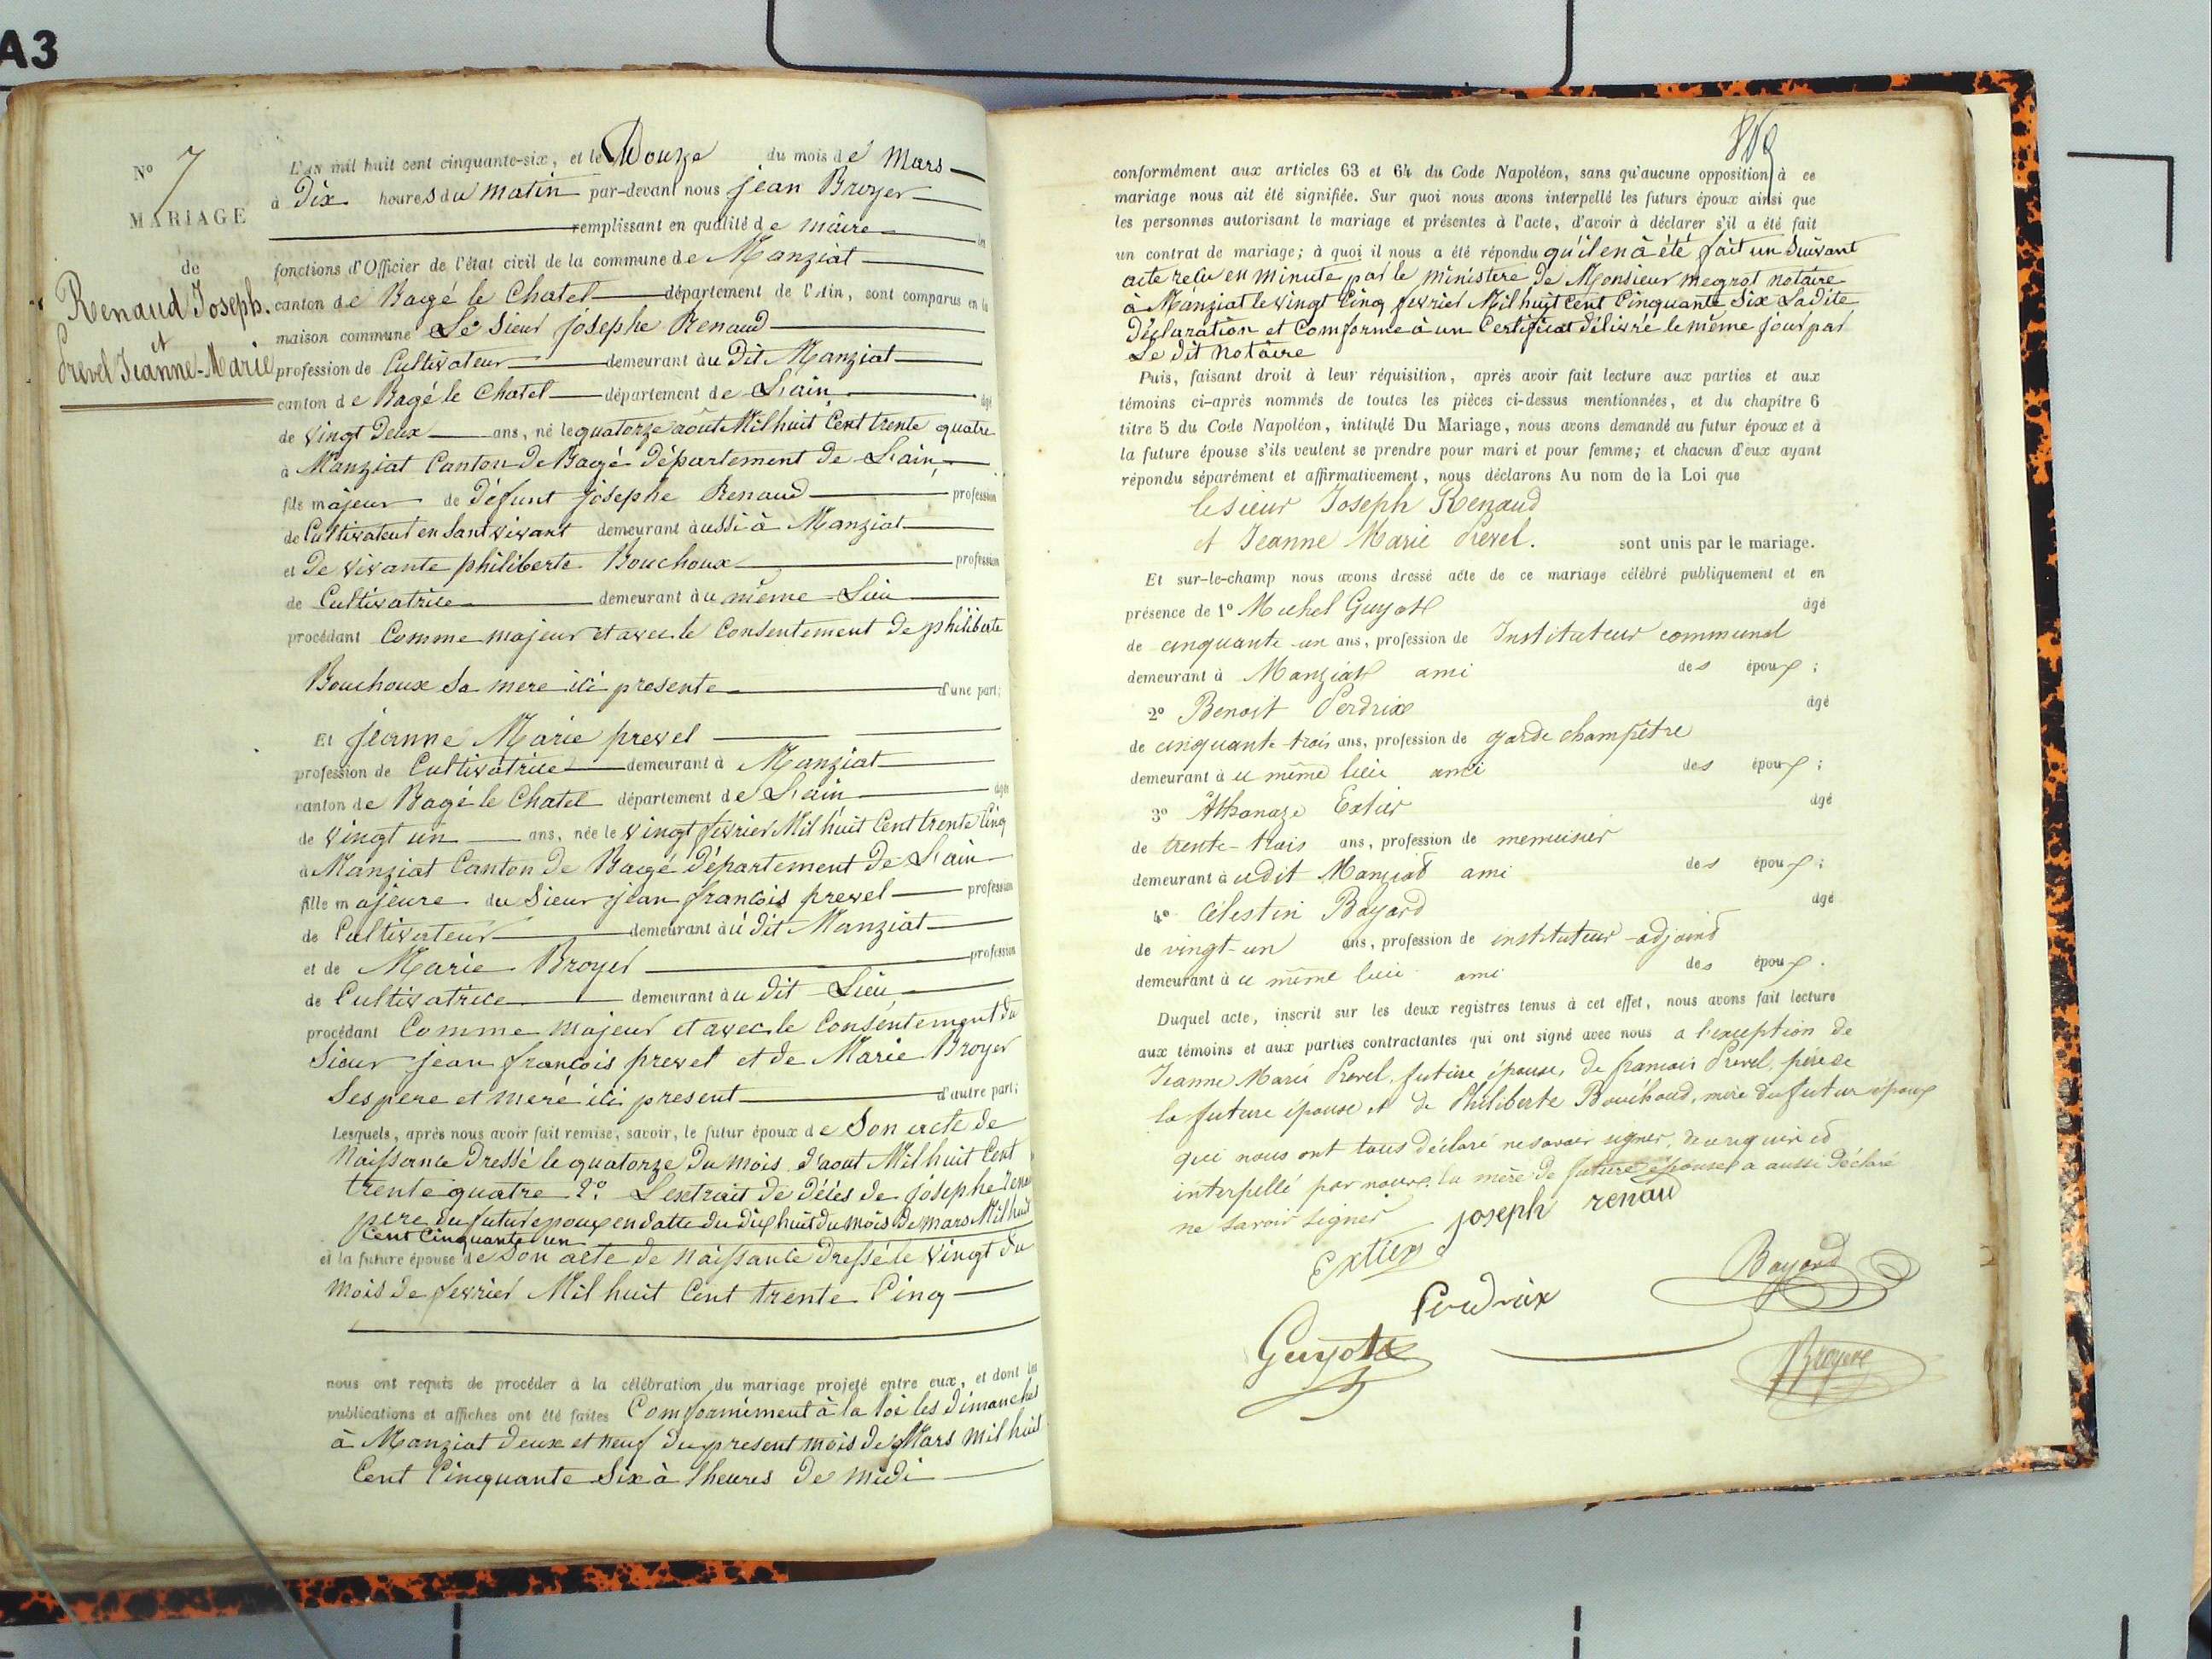 A3
N° 7
MARIAGE
de
Renaud Joseph.
et
Prevel Jeanne-Marie
L'AN mil huit cent cinquante-six, et le Douze du mois de Mars
à Dix heures du matin par-devant nous jean Broyer
remplissant en qualité de maire les
fonctions d'Officier de l'état civil de la commune de Manziat
canton de Bagé le Chatel département de l'Ain, sont comparus en la
maison commune Le Sieur josephe Renaud
profession de Cultivateur demeurant au Dit Manziat
canton de Bagé le Chatel département de L'ain âgé
de vingt Deux ans, né le quatorze août Mil huit Cent trente quatre
à Manziat Canton de Bagé Département de L'ain
fils majeur de Défunt josephe Renaud profession
de Cultivateur en sant vivant demeurant aussi à Manziat
et De vivante philiberte Bouchoux profession
de Cultivatrice demeurant au même Lieu
procédant Comme majeur et avec le Consentement de philiberte
Bouchoux Sa mere ici presente d'une part;
Et jeanne Marie prevel
profession de Cultivatrice demeurant à Manziat
canton de Bagé le Chatel département de L'ain âgée
de vingt un ans, née le vingt fevrier Mil huit Cent trente Cinq
à Manziat Canton de Bagé Département de L'ain
fille majeure du Sieur jean francois prevel profession
de Cultivateur demeurant au Dit Manziat
et de Marie Broyer profession
de Cultivatrice demeurant au dit Lieu
procédant Comme majeur et avec le Consentement du
Sieur jean francois prevel et de Marie Broyer
Ses pere et mere ici present d'autre part;
Lesquels, après nous avoir fait remise, savoir, le futur époux de Son acte de
Naissance Dressé le quatorze Du mois d'aout Mil huit Cent
trente quatre 2° L'extrait de Décès de josephe
pere du futur epoux en datte du dix huit du mois De mars Mil huit
Cent Cinquante un
et la future épouse de Son acte de Naissance Dressé le vingt du
mois de fevrier Mil huit Cent trente Cinq
nous ont requis de procéder à la célébration du mariage projeté entre eux, et dont les
publications et affiches ont été faites Comformément à la loi les Dimanches
à Manziat deux et neuf du present mois de Mars mil huit
Cent Cinquante Six à heures de midi
conformément aux articles 63 et 64 du Code Napoléon, sans qu'aucune opposition à ce
mariage nous ait été signifiée. Sur quoi nous avons interpellé les futurs époux ainsi que
les personnes autorisant le mariage et présentes à l'acte, d'avoir à déclarer s'il a été fait
un contrat de mariage; à quoi il nous a été répondu qu'il en à été fait un Suivant
acte reçu en minute par le ministere de Monsieur megrot notaire
à Manziat le vingt Cinq fevrier Mil huit Cent Cinquante Six Ladite
Déclaration et Comforme à un Certificat délivré le même jour par
Le dit Notaire
Puis, faisant droit à leur réquisition, après avoir fait lecture aux parties et aux
témoins ci-après nommés de toutes les pièces ci-dessus mentionnées, et du chapitre 6
titre 5 du Code Napoléon, intitulé Du Mariage, nous avons demandé au futur époux et à
la future épouse s'ils veulent se prendre pour mari et pour femme; et chacun d'eux ayant
répondu séparément et affirmativement, nous déclarons Au nom de la Loi que
le sieur Joseph Renaud
et Jeanne Marie Prevel. sont unis par le mariage.
Et sur-le-champ nous avons dressé acte de ce mariage célébré publiquement et en
présence de 1° Michel Guyot âgé
de cinquante-un ans, profession de Instituteur communal
demeurant à Manziat ami des époux;
2° Benoit Perdrix âgé
de cinquante-trois ans, profession de garde champêtre
demeurant à ce même lieu ami des époux;
3° Athanaze Extier âgé
de trente-trois ans, profession de menuisier
demeurant à udit Manziat ami des époux;
4° Célestin Bayard âgé
de vingt-un ans, profession de instituteur-adjoint
demeurant à ce même lieu ami des époux.
Duquel acte, inscrit sur les deux registres tenus à cet effet, nous avons fait lecture
aux témoins et aux parties contractantes qui ont signé avec nous a l'exception de
Jeanne Marie Prevel future épouse, de francois Prevel père de
la future épouse et de Philiberte Bouchoud, mère du futur époux
qui nous ont tous déclaré ne savoir signer, de ce requis et
interpellé par nous. la mère de future épouse a aussi déclaré
ne savoir signer joseph renau
Extier
Bayard
Perdrix
Guyot
Broyer